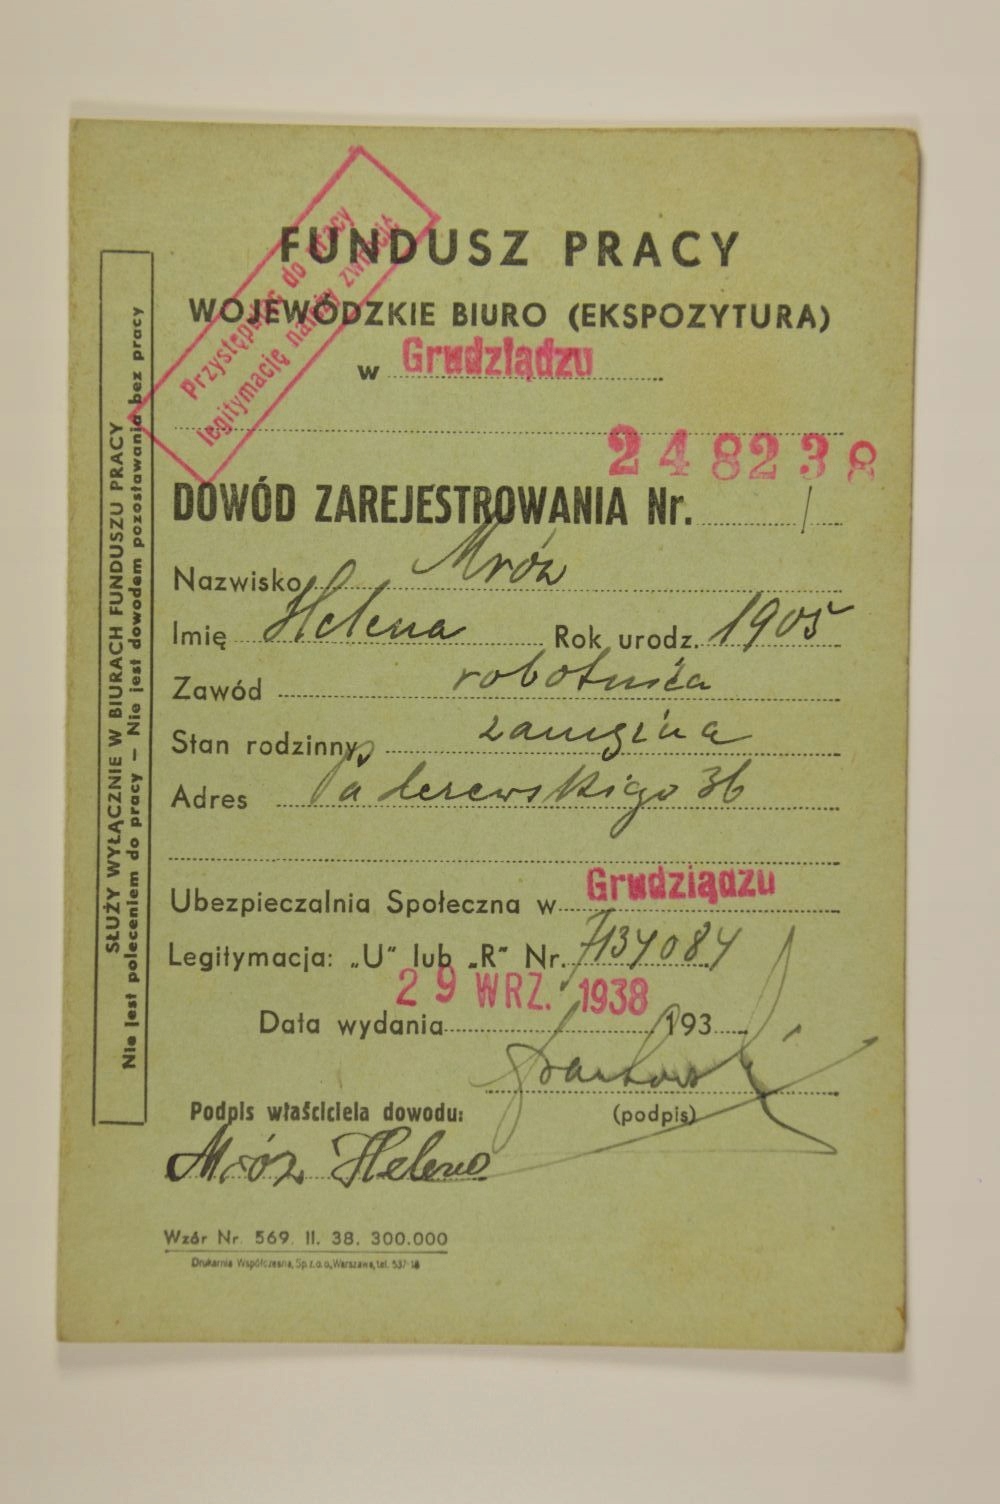 Przystępując do pracy
legitymację należy zwrócić
FUNDUSZ PRACY
WOJEWÓDZKIE BIURO (EKSPOZYTURA)
w Grudziądzu
248238
DOWÓD ZAREJESTROWANIA Nr.
Nazwisko Mróz
Imię Helena Rok urodz. 1905
Zawód robotnica
Stan rodzinny zamężna
Adres Paderewskigo 36
Ubezpieczalnia Społeczna w Grudziądzu
Legitymacja: „U" lub „R" Nr. 7134084
29 WRZ. 1938
Data wydania 193
(podpis)
Podpis właściciela dowodu:
Mróz Helena
Wzór Nr. 569. II. 38. 300.000
Drukarnia Współczesna, Sp. z o. o., Warszawa, tel. 537-18
SŁUŻY WYŁĄCZNIE W BIURACH FUNDUSZU PRACY
Nie jest poleceniem do pracy — Nie jest dowodem pozostawania bez pracy